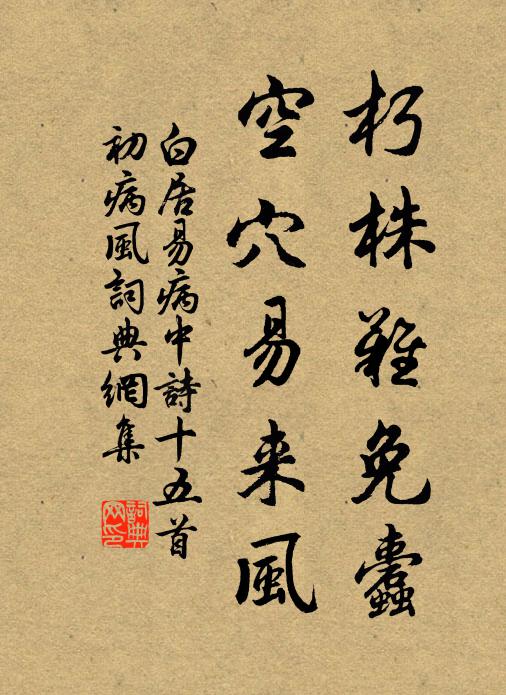 朽株難免蠹
空穴易来風
白居易病中詩十五首
初病風詞典網集
詞典
网印